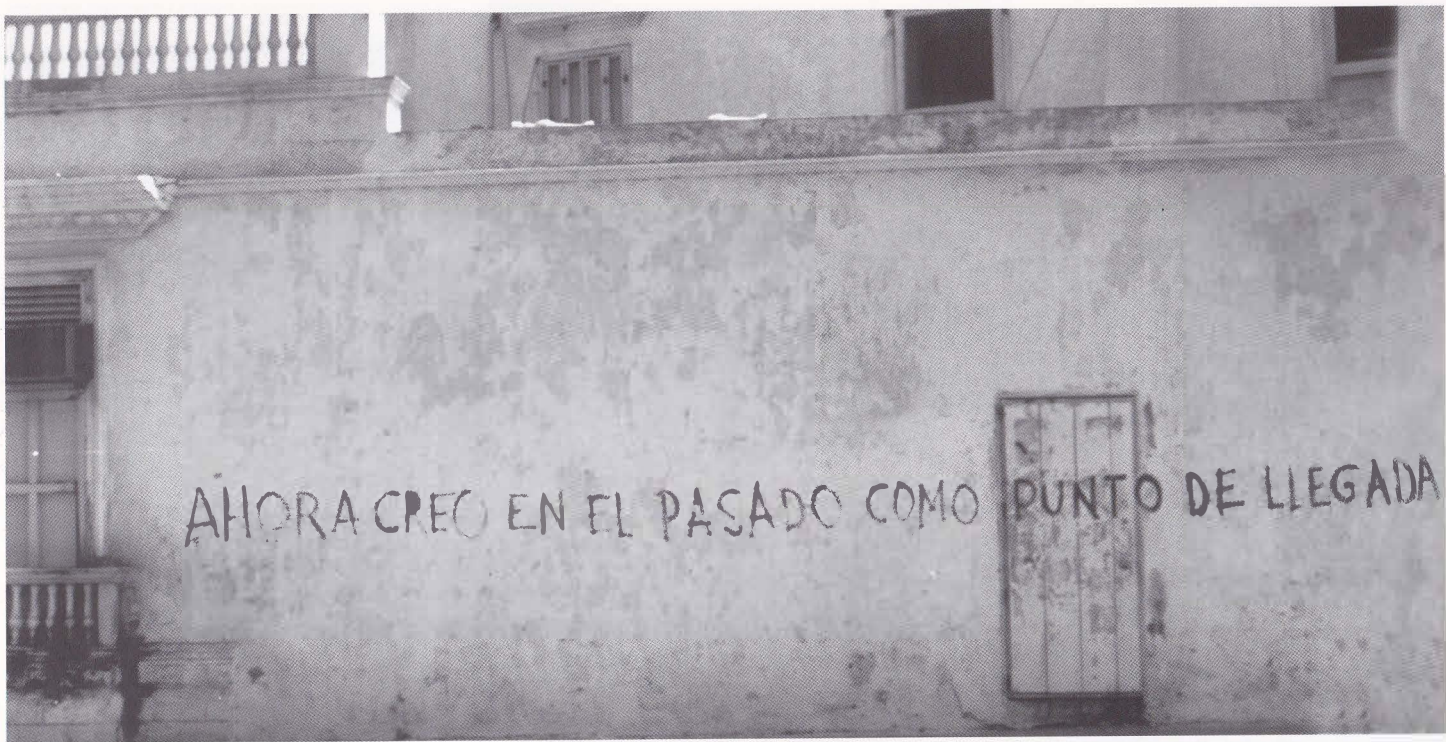 AHORA CREO EN EL PASADO COMO PUNTO DE LLEGADA